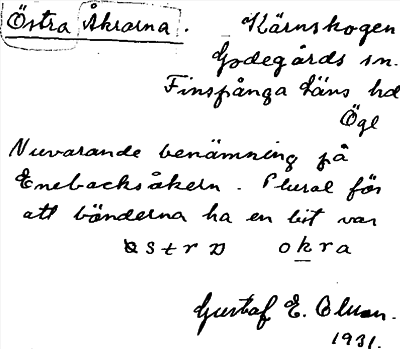 Östra Åkrarna. Kärnskogen
Godegårds sn.
Finspånga läns hd
Ögl
Nuvarande benämning på
Enebacksåkern. Plural för
att bönderna ha en bit var
okra
Gustaf E. Olsson.
1931.